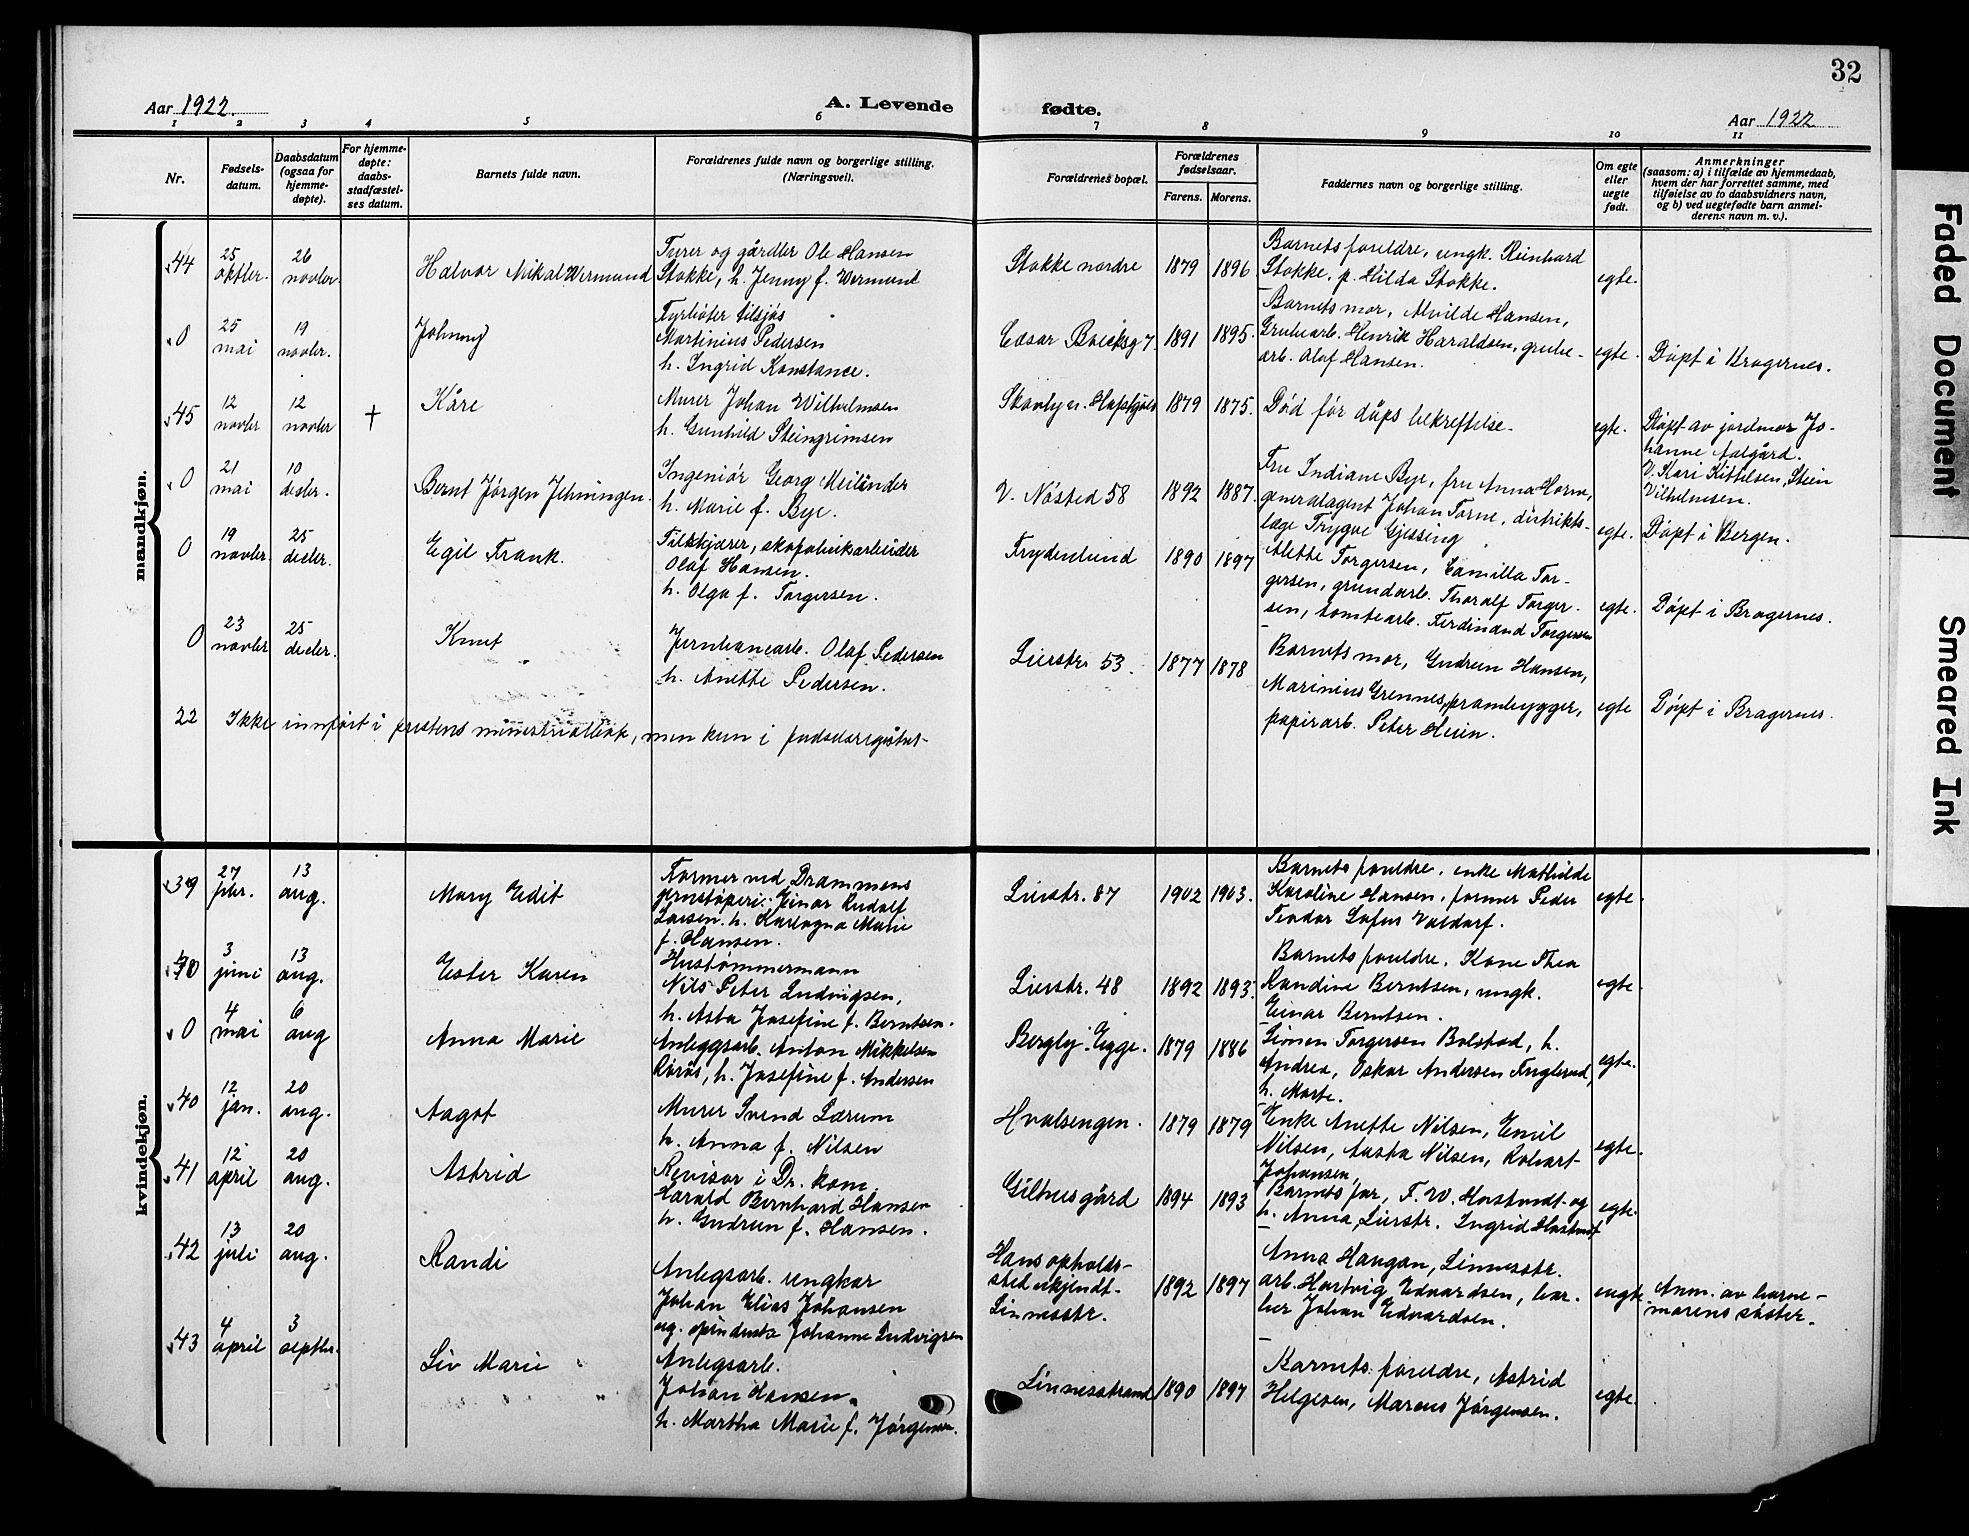 32
Aar 1922.
A. Levende
fødte.
Aar 1922
1 2 3 4 5 6 7 8 9 10 11
Nr.
Fødsels-
datum.
Daabsdatum
(ogsaa for
hjemme-
døpte).
For hjemme-
døpte:
daabs-
stadfæstel-
ses datum.
Barnets fulde navn.
Forældrenes fulde navn og borgerlige stilling.
(Næringsvei).
Forældrenes bopæl.
Forældrenes
fødselsaar.
Farens. Morens.
Faddernes navn og borgerlige stilling.
Om egte
eller
uegte
født.
Anmerkninger
(saasom: a) i tilfælde av hjemmedaab,
hvem der har forrettet samme, med
tilføielse av to daabsvidners navn,
og b) ved uegtefødte barn anmel-
derens navn m. v.).
mandkjøn.
44
25
oktber.
26
novber.
Halvor Mikal Wermund
Furer og gårdbr Ole Hansen
Stokke, h. Jenny f. Wermund
Stokke nordre
1879 1896
Barnets foreldre, ungk. Reinhard
Stokke, p. Hilda Stokke.
egte.
0
25
mai
19
novber.
Johnny
Fyrbøter tilsjøs
Martinius Pedersen
h. Ingrid Konstance.
1891 1895.
Barnets mor, Alvilde Hansen,
Grubearb. Henrik Haraldsen, grube-
arb. Olaf Hansen.
egte.
Døpt i Bragernes.
45
12
novber
12
novber
†
Kåre
Murer Johan Wilhelmsen
h. Gunhild Steingrimsen
1879 1875.
Død før dåps bekreftelse.
egte.
Døpt av jordmor Jo-
hanne Aalgård.
V. Kari Kittelsen, Stein
Vilhelmsen.
0
21
mai
10
desber.
Bernt Jørgen
Ingeniør Georg Meilænder
h. Marie f. Bye.
V. Nøsted 58
1892 1887.
Fru Indiane Bye, fru Anna Horne,
generalagent Johan Torne, distrikts-
læge Trygve Gjessing
egte.
Døpt i Bergen.
0
19
novber.
25
desber.
Egil Frank.
skofabrikarbeider
Olaf Hansen.
h. Olga f. Torgersen.
Frydenlund
1890 1897
Alette Torgersen, Camilla Tor-
gersen, grundarb. Thoralf Torger-
sen, tomtearb. Ferdinand Torgersen
egte.
Døpt i Bragernes.
0
23
novber
25
desber.
Knut
Jernbanearb. Olaf Pedersen
h. Anette Pedersen.
Lierstr. 53.
1877 1878
Barnets mor, Gudrun Hansen,
Marinius Grennes, prambygger,
papirarb. Peter Heien.
egte
Døpt i Bragernes.
22 Ikke innført i prestens ministerialbok, men kun i fødselsregistret
kvindekjøn.
39
27
febr.
13
aug.
Mary Edit
Former ved Drammens
Jernstøperi Einar Rudolf
Larsen. h. Marie
f. Hansen.
Lierstr. 87
1902 1903.
Barnets foreldre, enke Mathilde
Karoline Hansen, former Peder
Teodor Sofus Valdorf.
egte.
3
juni
13
aug.
Ester Karen
Hustømmermann
Nils Peter Ludvigsen,
h. Asta Josefine f. Berntsen.
Lierstr. 48
1892 1893.
Barnets foreldre, Kone Thea
Randine Berntsen, ungk.
Einar Berntsen.
egte.
0
4
mai
6
aug
Anna Marie
Anleggsarb. Anton Mikkelsen
Rørøs, h. Josefine f. Andersen
Bergly, Egge.
1879 1886
Simen Torgersen Bolstad, h.
Andrea, Oskar Andersen Fuglerud,
h. Marte.
egte.
40
12
jan.
20
aug.
Aagot
Murer Svend Lærum
h. Anna f. Nilsen
Hvalsengen.
1879 1879
Enke Anette Nilsen, Emil
Nilsen, Aasta Nilsen, Robart
Johansen,
egte.
41
12
april
20
aug.
Astrid
Revisor i Dr. kom.
Harald Bernhard Hansen
h. Gudrun f. Hansen.
Gilhusgård
1894 1893
Barnets far, F. W. Harstvedt og
h. Anna, Lierstr. Ingrid
egte.
42
13
juli
20
aug.
Randi
Anlegsarb. ungkar
Johan Elias Johansen
og. Johanne Ludvigsen
Hans opholds-
sted ukjendt.
Linnesstr.
1892 1897
Anna Haugan, Linnesstr.
arb. Hartvig Edvardsen, bar-
ber Johan Edvardsen.
uegte
Anm. av barne-
morens søster.
43
4
april
3
septber.
Liv Marie
Anlegsarb.
Johan Hansen.
h. Martha Marie f. Jørgensen.
Linnesstrand
1890 1897
Barnets foreldre, Astrid
Helgesen, Marcus Jørgensen.
egte.
Faded Document
Smeared Ink